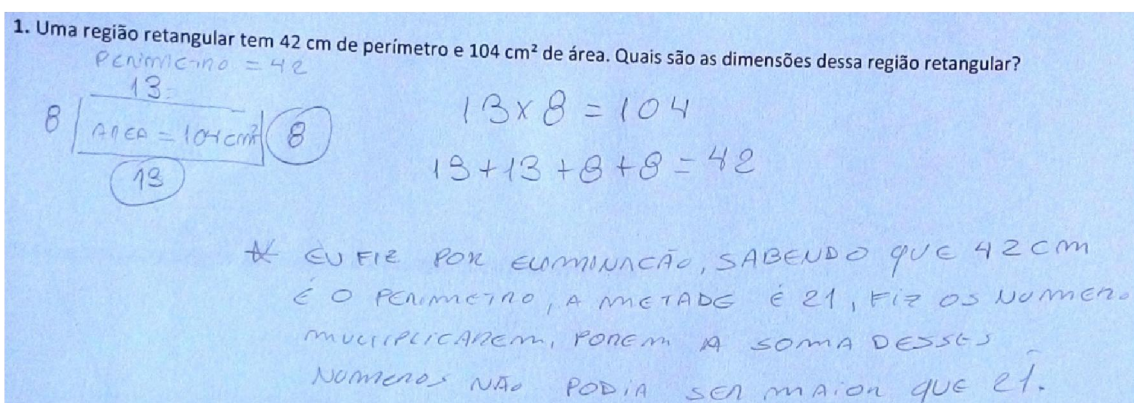 1. Uma região retangular tem 42 cm de perímetro e 104 cm² de área. Quais são as dimensões dessa região retangular?
PERIMETRO = 42
13
8 AREA = 104cm² 8
13
13 x 8 = 104
13 + 13 + 8 + 8 = 42
* EU FIZ POR ELIMINACÃO, SABENDO QUE 42 cm
É O PERIMETRO, A METADE É 21, FIZ OS NUMERO
MULTIPLICAREM, POREM A SOMA DESSES
NUMEROS NÃO PODIA SER MAIOR QUE 21.